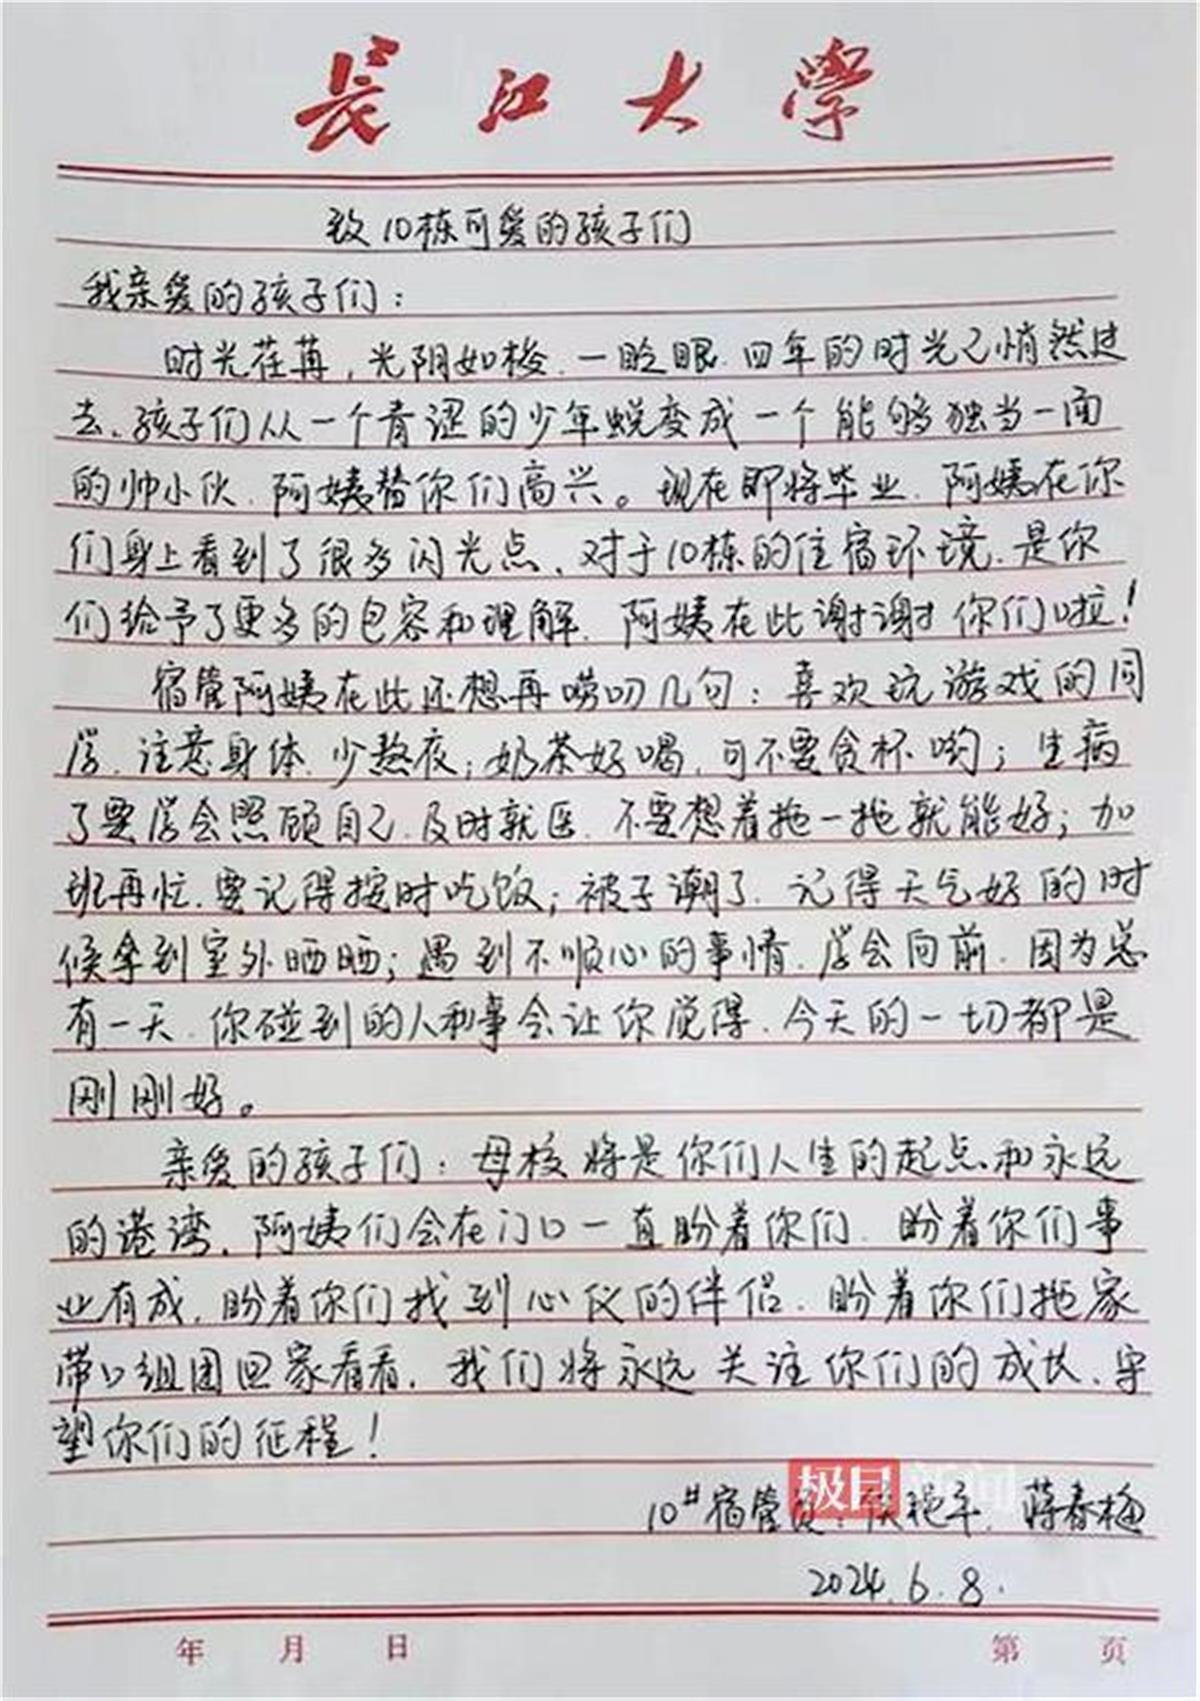 长江大学
致10栋可爱的孩子们
我亲爱的孩子们：
时光荏苒，光阴如梭，一眨眼，四年的时光已悄然过
去，孩子们从一个青涩的少年蜕变成一个能够独当一面
的帅小伙，阿姨替你们高兴。现在即将毕业，阿姨在你
们身上看到了很多闪光点，对于10栋的住宿环境，是你
们给予了更多的包容和理解，阿姨在此谢谢你们啦！
宿管阿姨在此还想再唠叨几句：喜欢玩游戏的同
学，注意身体，少熬夜；奶茶好喝，可不要贪杯哟；生病
了要学会照顾自己，及时就医，不要想着拖一拖就能好；加
班再忙，要记得按时吃饭；被子潮了，记得天气好的时
候拿到室外晒晒；遇到不顺心的事情，学会向前，因为总
有一天，你碰到的人和事会让你觉得，今天的一切都是
刚刚好。
亲爱的孩子们：母校将是你们人生的起点和永远
的港湾，阿姨们会在门口一直盼着你们，盼着你们事
业有成，盼着你们找到心仪的伴侣，盼着你们拖家
带口组团回家看看，我们将永远关注你们的成长，守
望你们的征程！
极目新闻
10#宿管员：艳平，蒋春梅
2024.6.8.
年 月 日 第 页